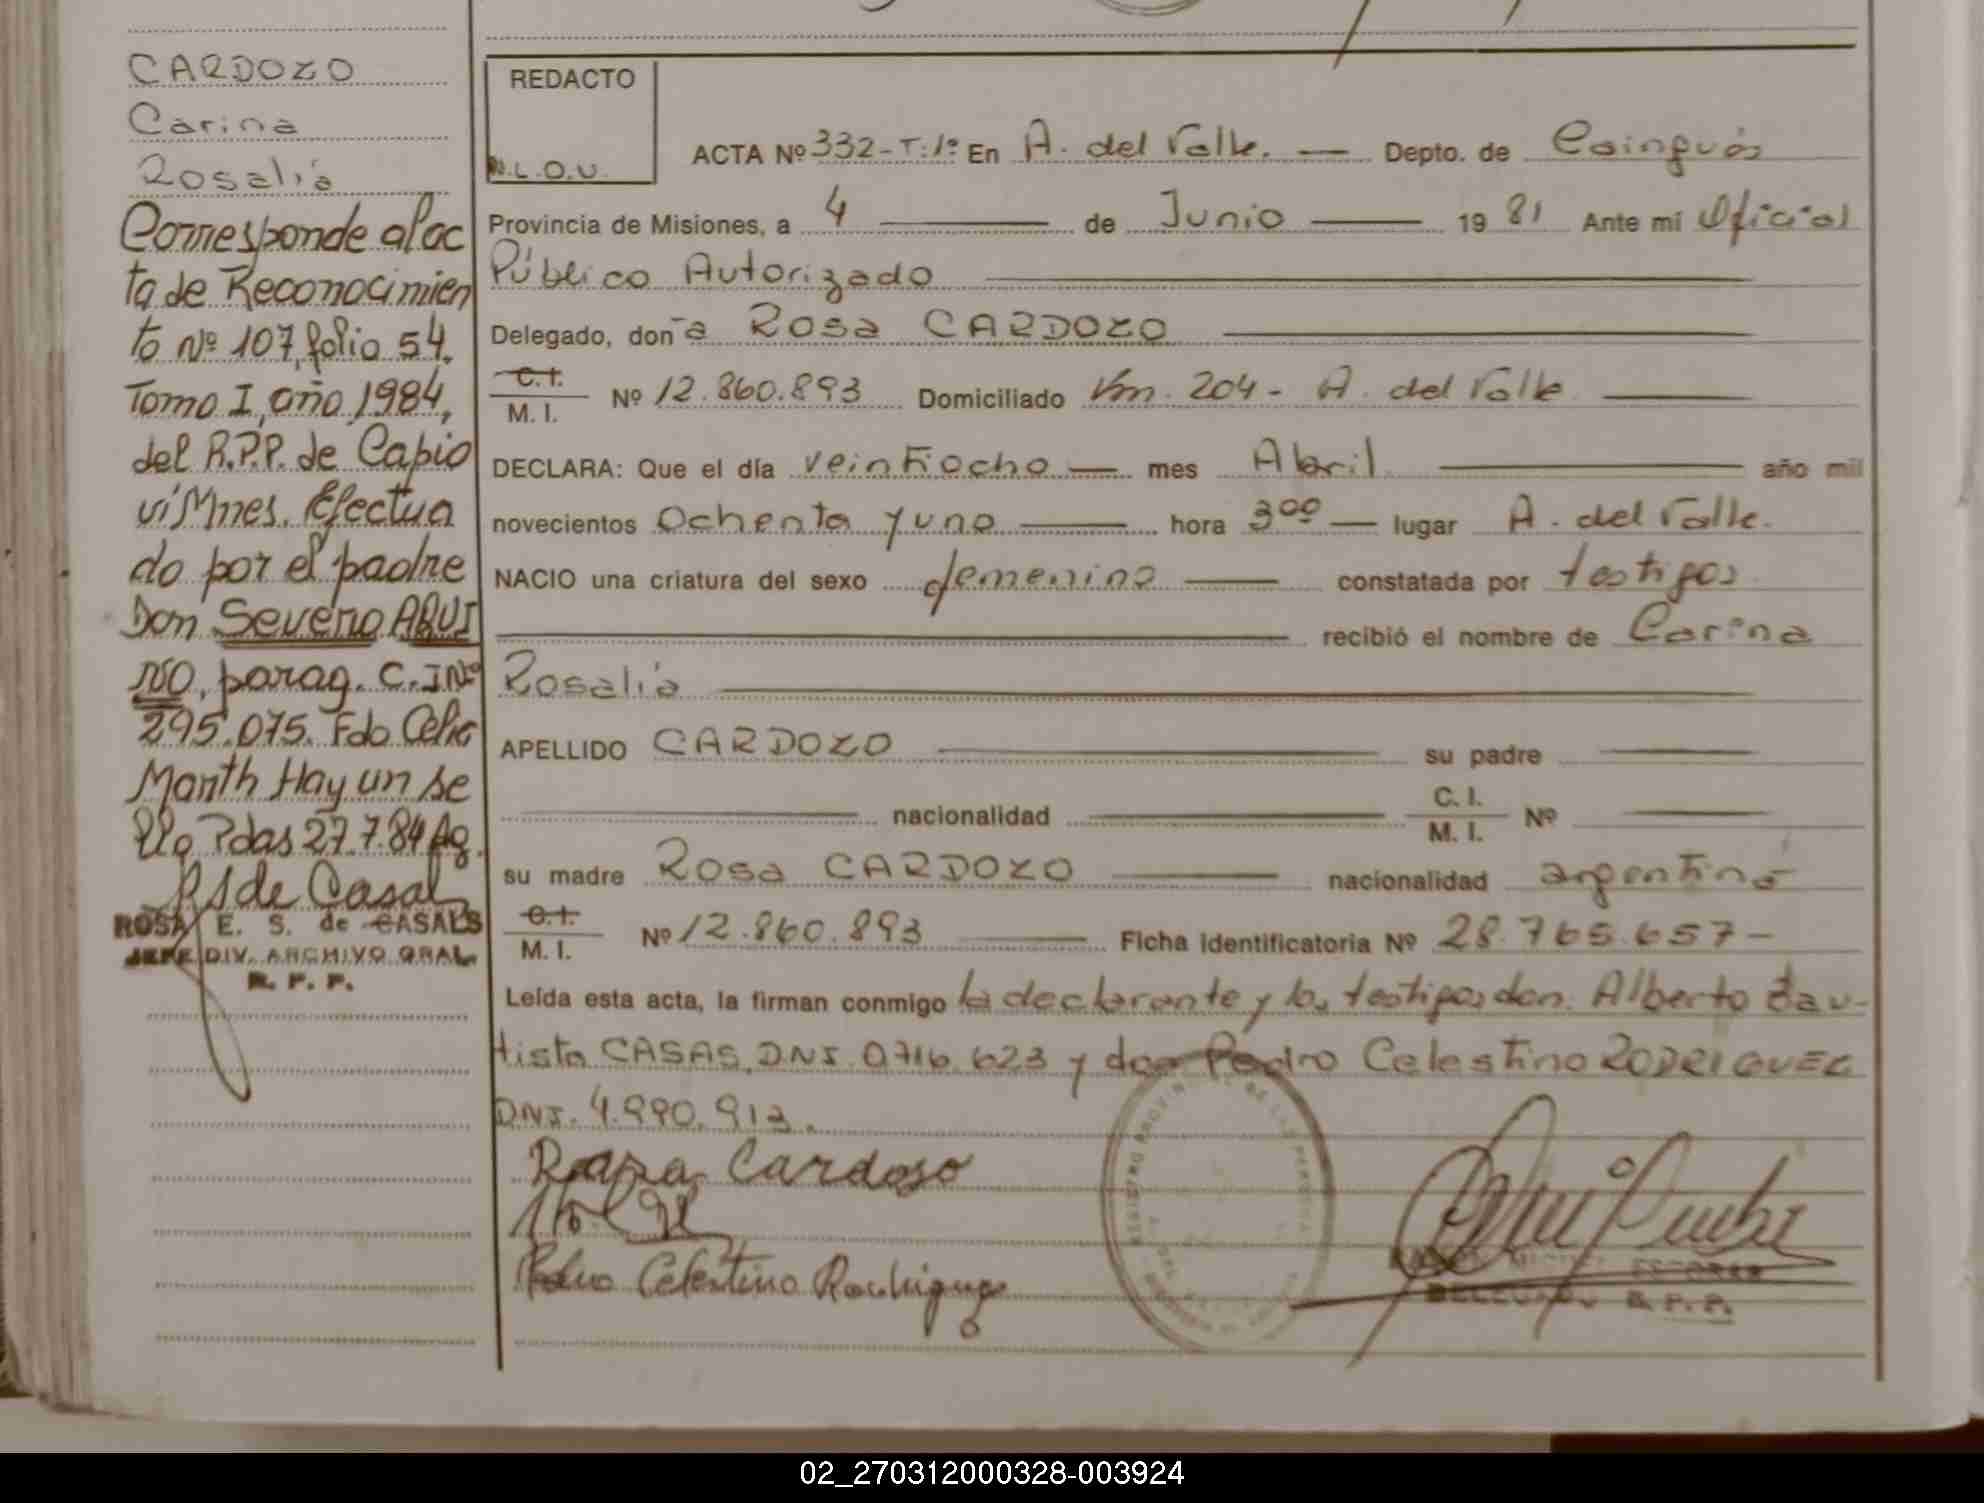 CARDOZO
Carina
Rosalia
Corresponde al ac
ta de Reconocimien
to Nº 107, folio 54,
Tomo I, año 1984,
del R.P.P. de Capio
ví Mnes. Efectua
do por el padre
Don Severo AQUI
NO, parag. C.I Nº
295.075. Fdo Celia
Marth Hay un se
llo Pdas 27.7.84 Ag.
RSde Casals
ROSA E. S. de CASALS
JEFE DIV. ARCHIVO GRAL.
R. P. P.
REDACTO
L.O.V.
ACTA Nº 332-T:1º En A. del Valle. Depto. de Cainguás
Provincia de Misiones, a 4 de Junio 19 81 Ante mí Oficial
Público Autorizado
Delegado, don-a Rosa CARDOZO
C.I.
M. I. Nº 12.860.893 Domiciliado Km. 204 - A. del Valle
DECLARA: Que el día veintiocho mes Abril año mil
novecientos Ochenta y uno hora 3⁰⁰ lugar A. del Valle.
NACIO una criatura del sexo femenino constatada por testigos
recibió el nombre de Carina
Rosalia
APELLIDO CARDOZO su padre
nacionalidad C. I.
M. I. Nº
su madre Rosa CARDOZO nacionalidad argentina
C.I.
M. I. Nº 12.860.893 Ficha identificatoria Nº 28.765.657-
Leída esta acta, la firman conmigo la declarante y los testigos don. Alberto Bau-
tista CASAS, DNI. 0716.623 y don Pedro Celestino RODRIGUEZ
DNI. 4.990.913.
Rosa Cardoso
Pedro Celestino Rodriguez
DELEGADO R. P. P.
02_270312000328-003924